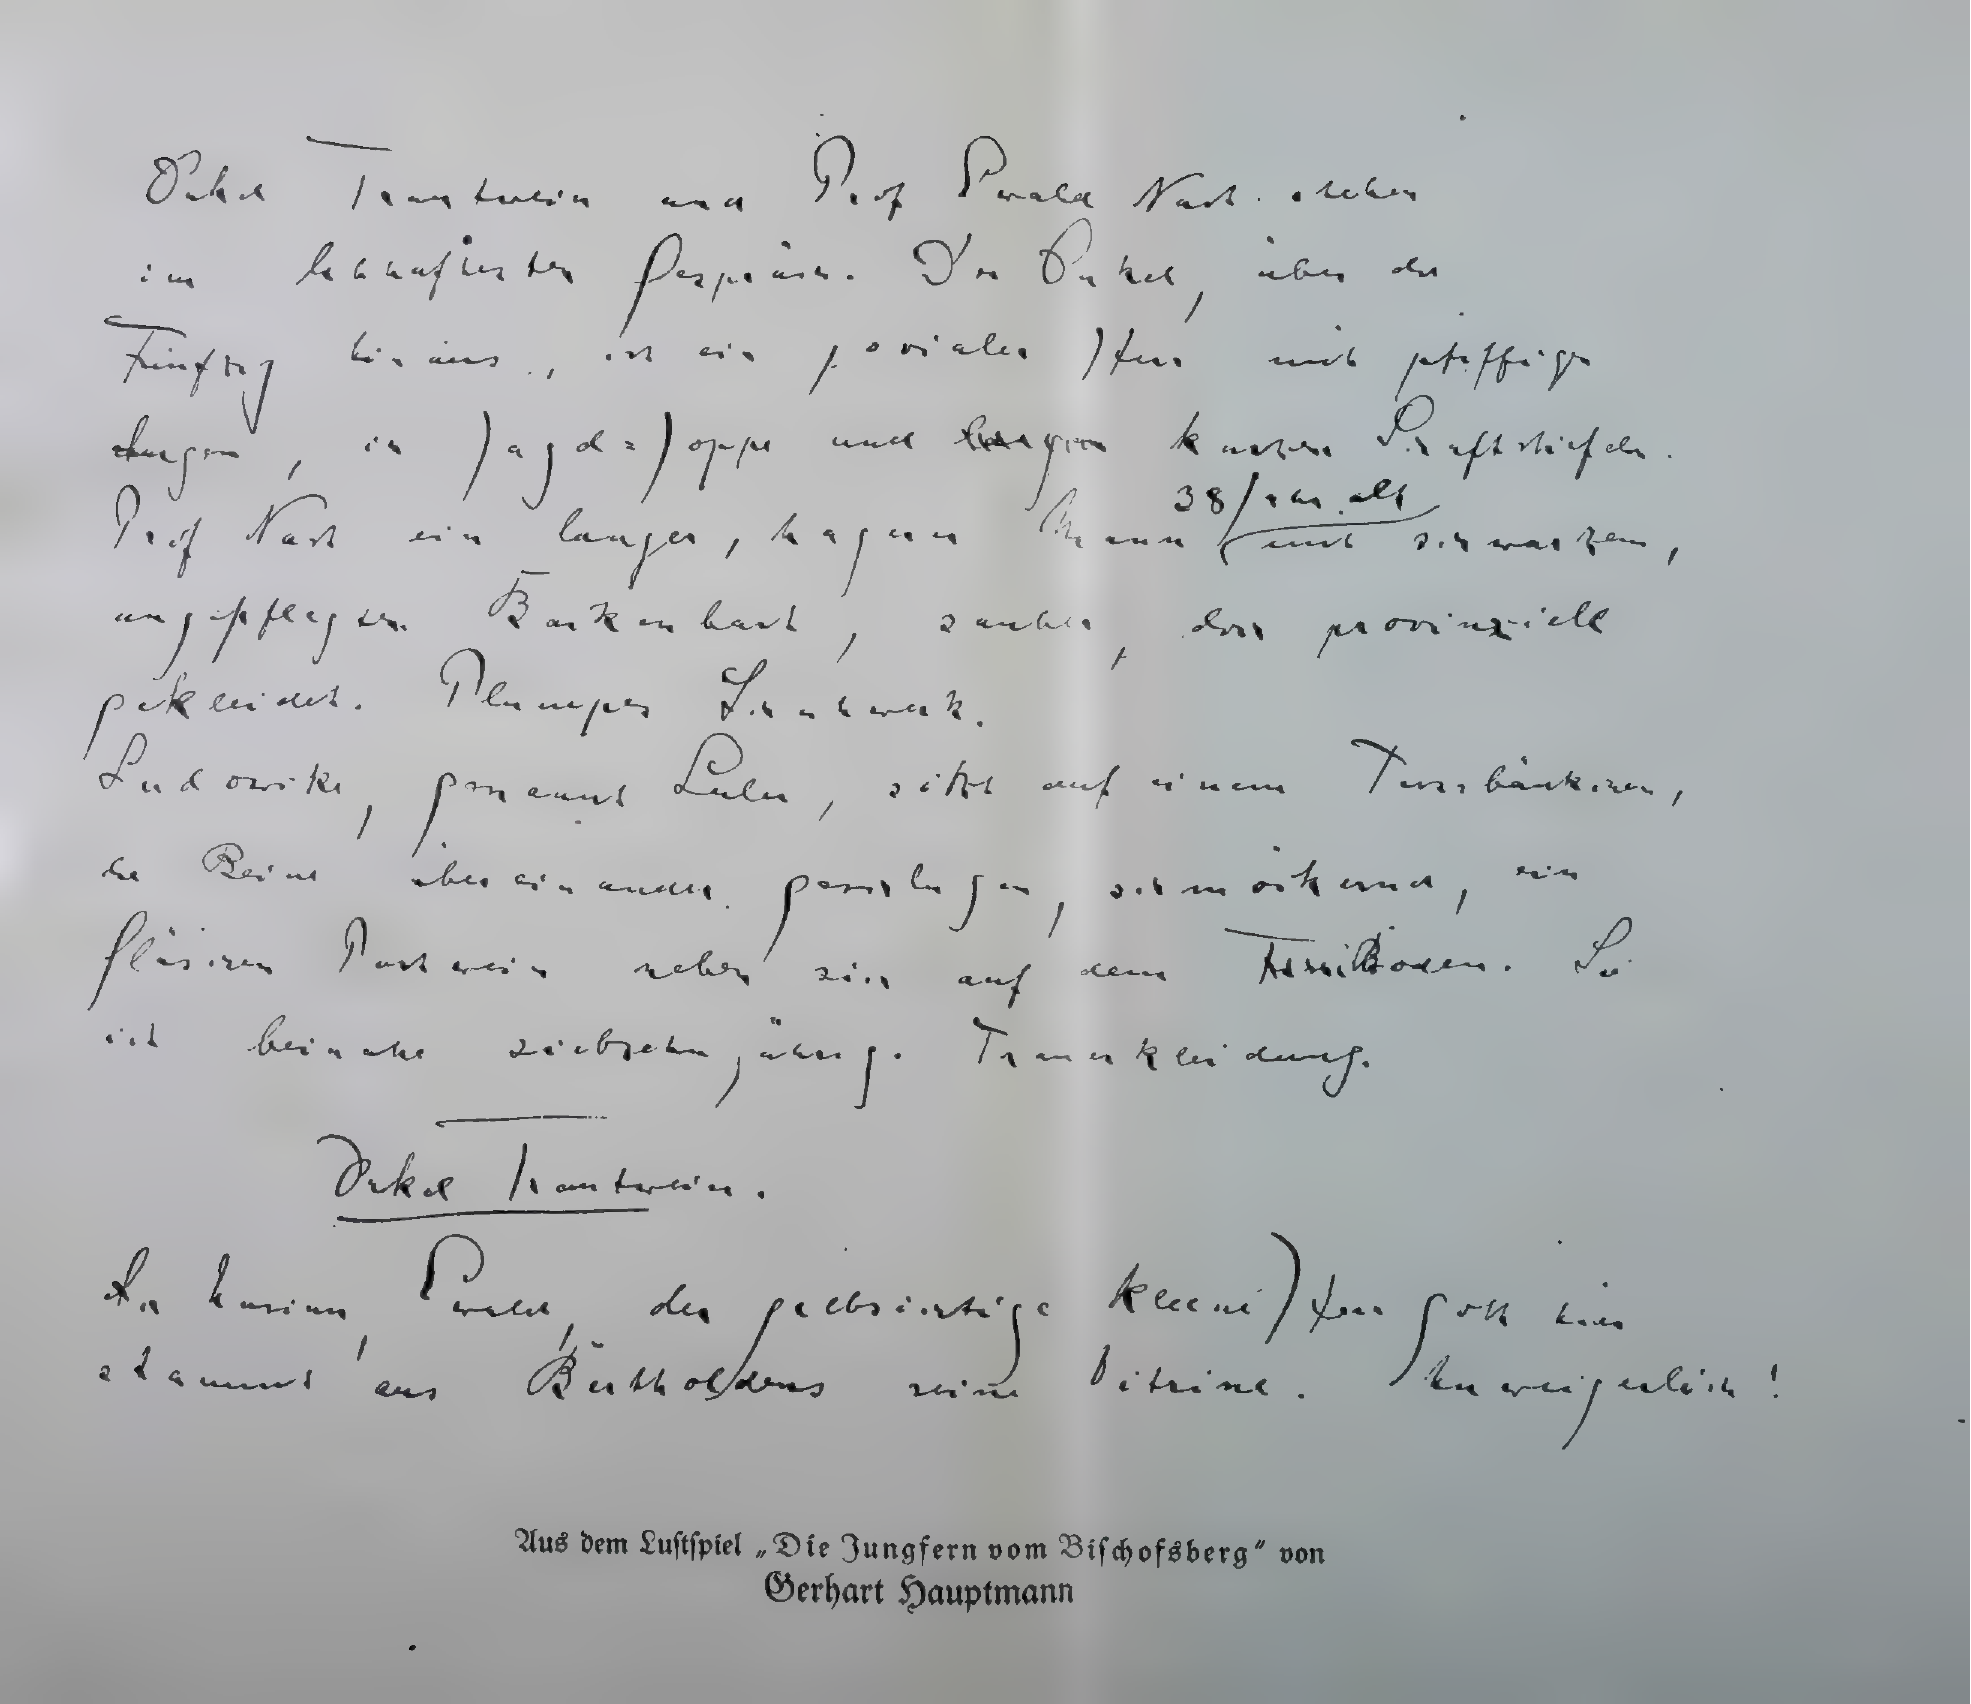 Onkel Trautwein und Prof Ewald Nast stehen
im lebhaftesten Gespräch. Der Onkel, über die
Fünfzig hinaus, ist ein jovialer Herr mit pfiffigen
Augen, in Jagd=Joppe und langen kurzen Schaftstiefeln.
38 Jahr alt
Prof Nast ein langer, hagerer Mann mit schwarzem,
ungepflegten Backenbart, sauber, doch provinziell
gekleidet. Plumpes Schuhwerk.
Ludowike, genannt Lulu, sitzt auf einem Fussbänkchen,
die Beine übereinander geschlagen, schmökernd, ein
Gläschen Portwein neben sich auf dem Boden. Sie
ist beinahe siebzehnjährig. Trauerkleidung.
Onkel Trautwein.
Ewald, der gelbsichtige kleine Herrgott hier
stammt aus Bertholdens seine Vitrine. Unweigerlich!
Aus dem Lustspiel „Die Jungfern vom Bischofsberg" von
Gerhart Hauptmann